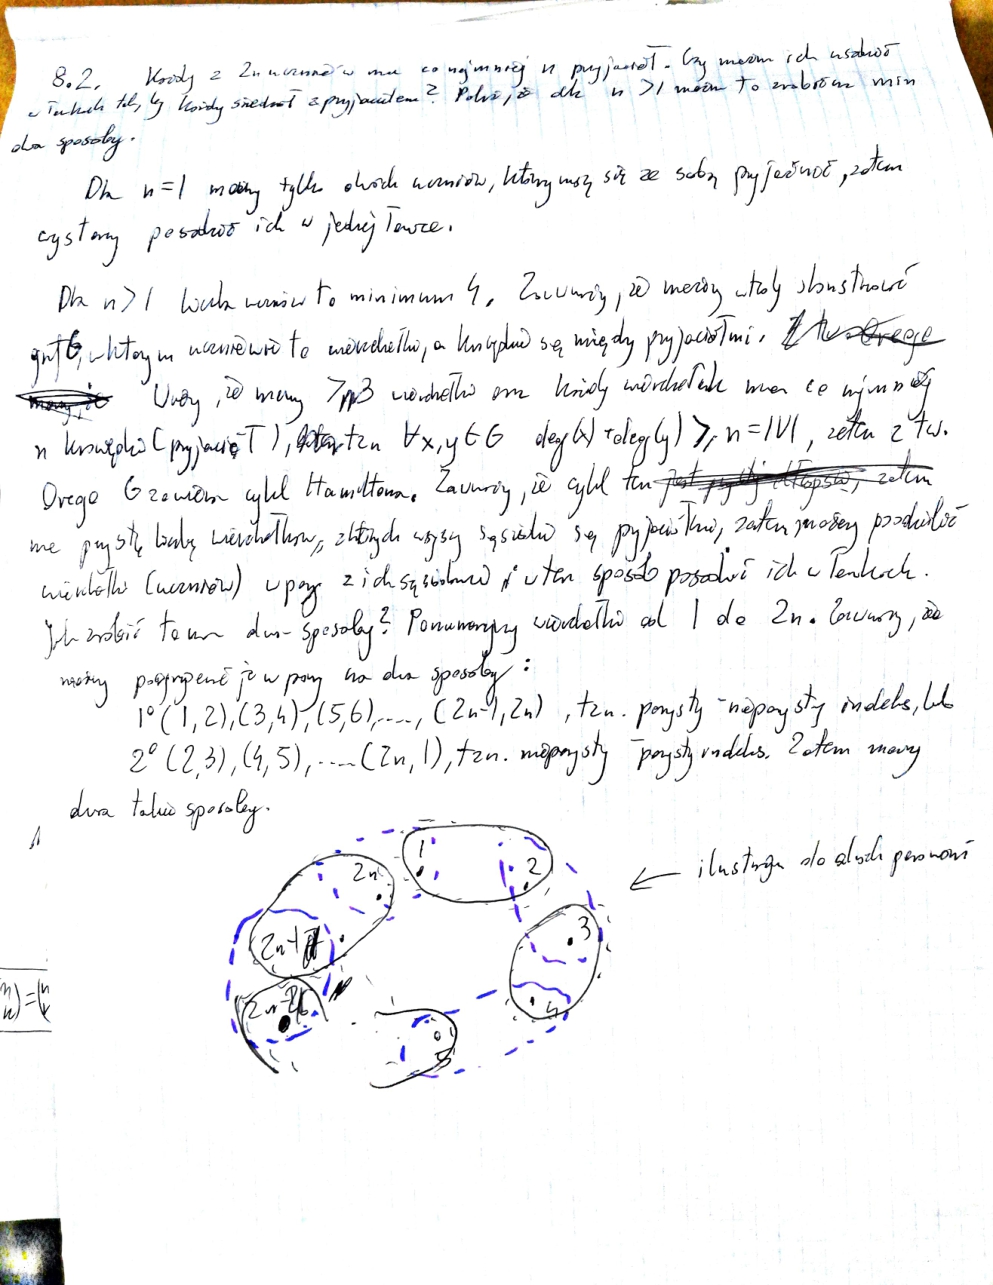 8.2. Każdy z 2n uczniów ma co najmniej n przyjaciół. Czy można ich usadzić
w ławkach tak, by każdy siedział z przyjacielem? Pokaż, że dla n >1 można to zrobić na min
dwa sposoby.
Dla n=1 mamy tylko dwóch uczniów, którzy muszą się ze sobą przyjaźnić, zatem
wystarczy posadzić ich w jednej ławce.
Dla n>1 liczba uczniów to minimum 4. Zauważmy, że możemy wtedy skonstruować
graf G, w którym uczniowie to wierzchołki, a krawędzie są między przyjaciółmi.
Uwaga, że mamy >3 wierzchołki oraz każdy wierzchołek ma co najmniej
n krawędzi (przyjaciół), tzn ∀x,y∈G deg(x)+deg(y) ≥ n=|V|, zatem z tw.
Orego G zawiera cykl Hamiltona. Zauważmy, że cykl ten
ma parzystą liczbę wierzchołków, z których wszyscy sąsiedzi są przyjaciółmi, zatem możemy podzielić
wierzchołki (uczniów) w pary z ich sąsiadami i w ten sposób posadzić ich w ławkach.
Jak zrobić to na dwa sposoby? Ponumerujmy wierzchołki od 1 do 2n. Zauważmy, że
możemy pogrupować je w pary na dwa sposoby:
1° (1,2),(3,4),(5,6),...., (2n-1,2n) , tzn. parzysty - nieparzysty indeks, lub
2° (2,3),(4,5),....(2n,1), tzn. nieparzysty - parzysty indeks. Zatem mamy
dwa takie sposoby.
← ilustracja do dwóch
1
2
3
4
5
2n
2n-1
2n-2